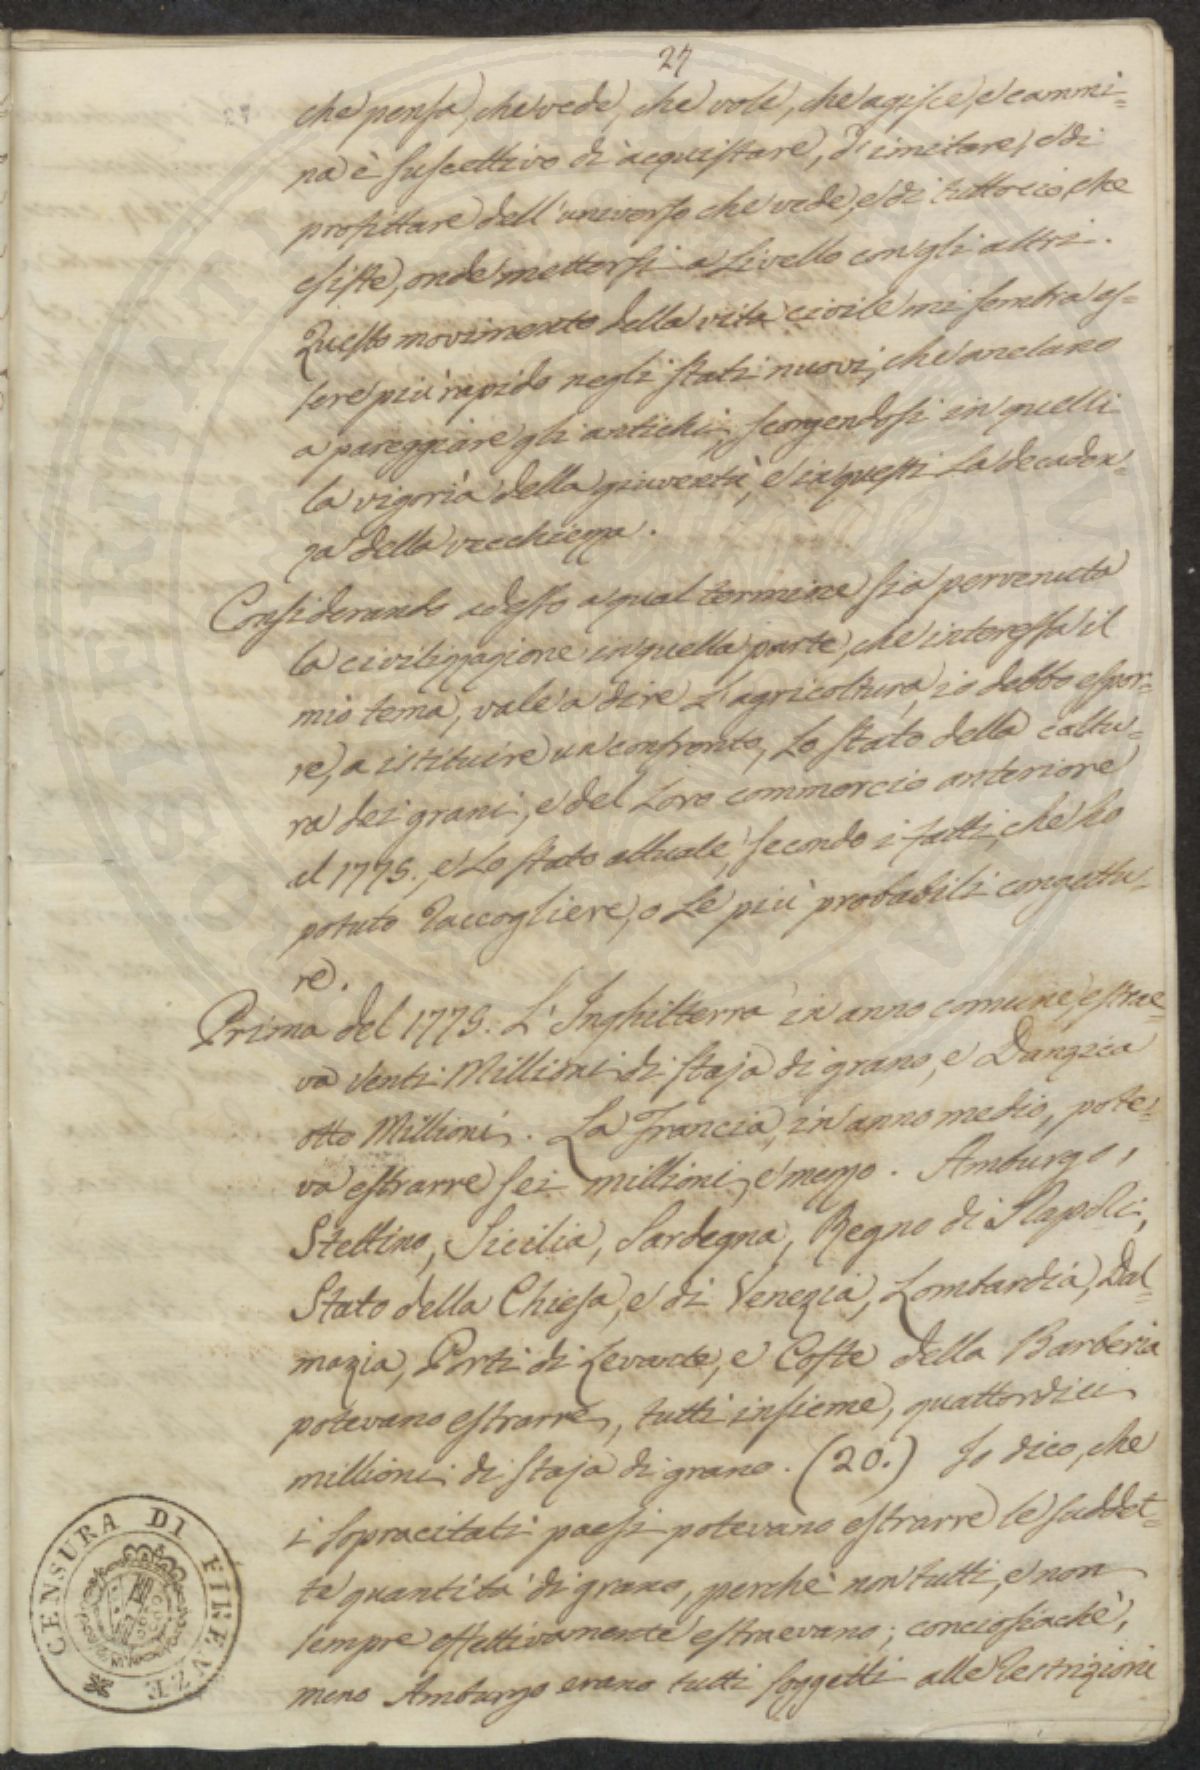 27
che pensa, che vede, che vole, che agisce, e cammi=
na è suscettivo di acquistare, d'imitare, e di
profittare dell'universo che vede, e di tutto ciò, che
esiste, onde mettersi a Livello con gli altri.
Questo movimento della vita civile mi sembra es=
sere più rapido negli stati nuovi, che anelano
a pareggiare gli antichi, scorgendosi in quelli
la vigoria della gioventù, e in questi La decaden=
za della vecchiezza.
Considerando adesso a qual termine sia pervenuta
la civilizzazione in quella parte, che interessa il
mio tema, vale a dire L'agricoltura, io debbo espor=
re, a istituire un confronto, Lo stato della coltu=
ra dei grani, e del Loro commercio anteriore
al 1775., e Lo stato attuale, secondo i fatti, che ho
potuto raccogliere, o Le più probabili congettu=
re.
Prima del 1775. L'Inghilterra in anno comune, estrae=
va Venti Millioni di staja di grano, e Danzica
otto Millioni. La Francia, in anno medio, pote=
va estrarre sei millioni, e mezzo. Amburgo,
Stettino, Sicilia, Sardegna, Regno di Napoli,
Stato della Chiesa, e di Venezia, Lombardia, Dal=
mazia, Porti di Levante, e Coste della Barberia
potevano estrarre, tutti insieme, quattordici
millioni di staja di grano. (20.) Io dico, che
i sopracitati paesi potevano estrarre le suddet=
te quantità di grano, perché non tutti, e non
sempre effettivamente estraevano; conciosiaché,
meno Amburgo erano tutti soggetti alle Restrizioni
CENSURA DI FIRENZE